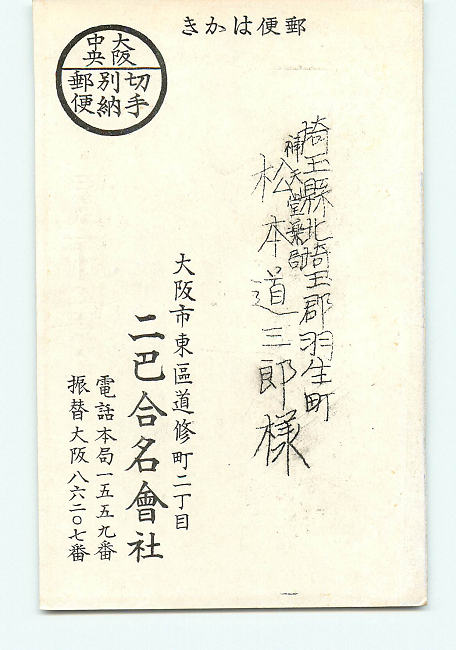 郵便はかき
大阪
中央
切手
別納
郵便
埼玉縣北埼玉郡羽生町
神天堂薬局
松本道三郎様
大阪市東區道修町二丁目
二巴合名會社
電話本局一五五九番
振替大阪八六二〇七番